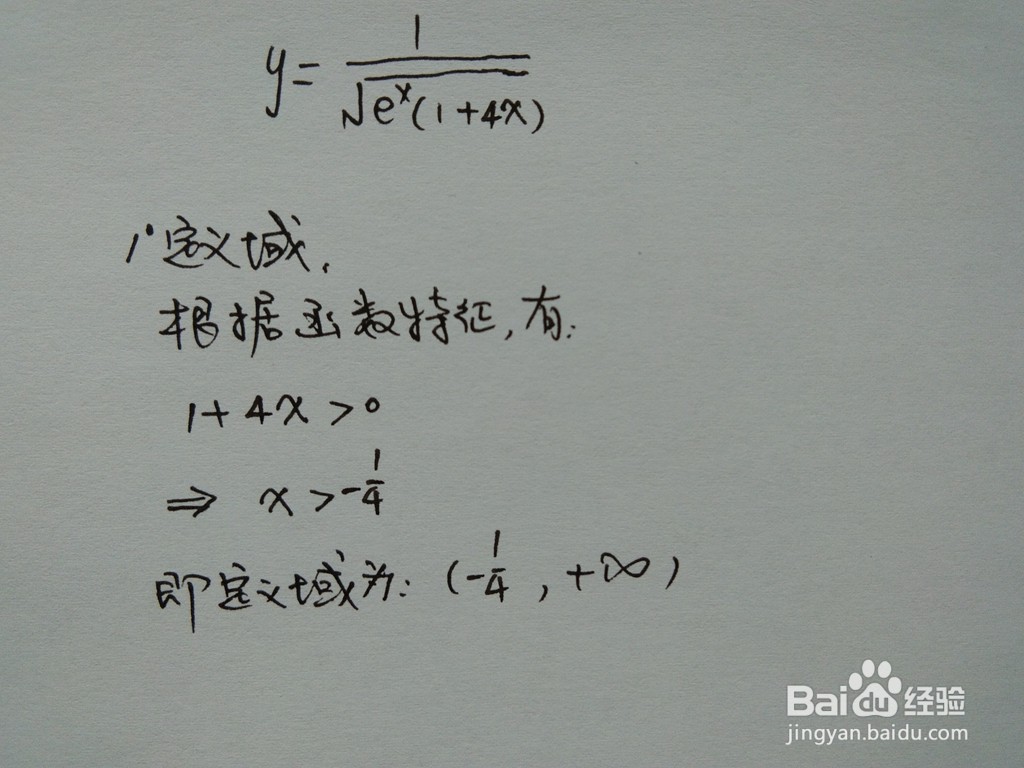 y = 1/√(e^x(1+4x))
1°定义域.
根据函数特征,有:
1+4x>0
⇒ x>-1/4
即定义域为: (-1/4, +∞)
Bai du 经验
jingyan.baidu.com